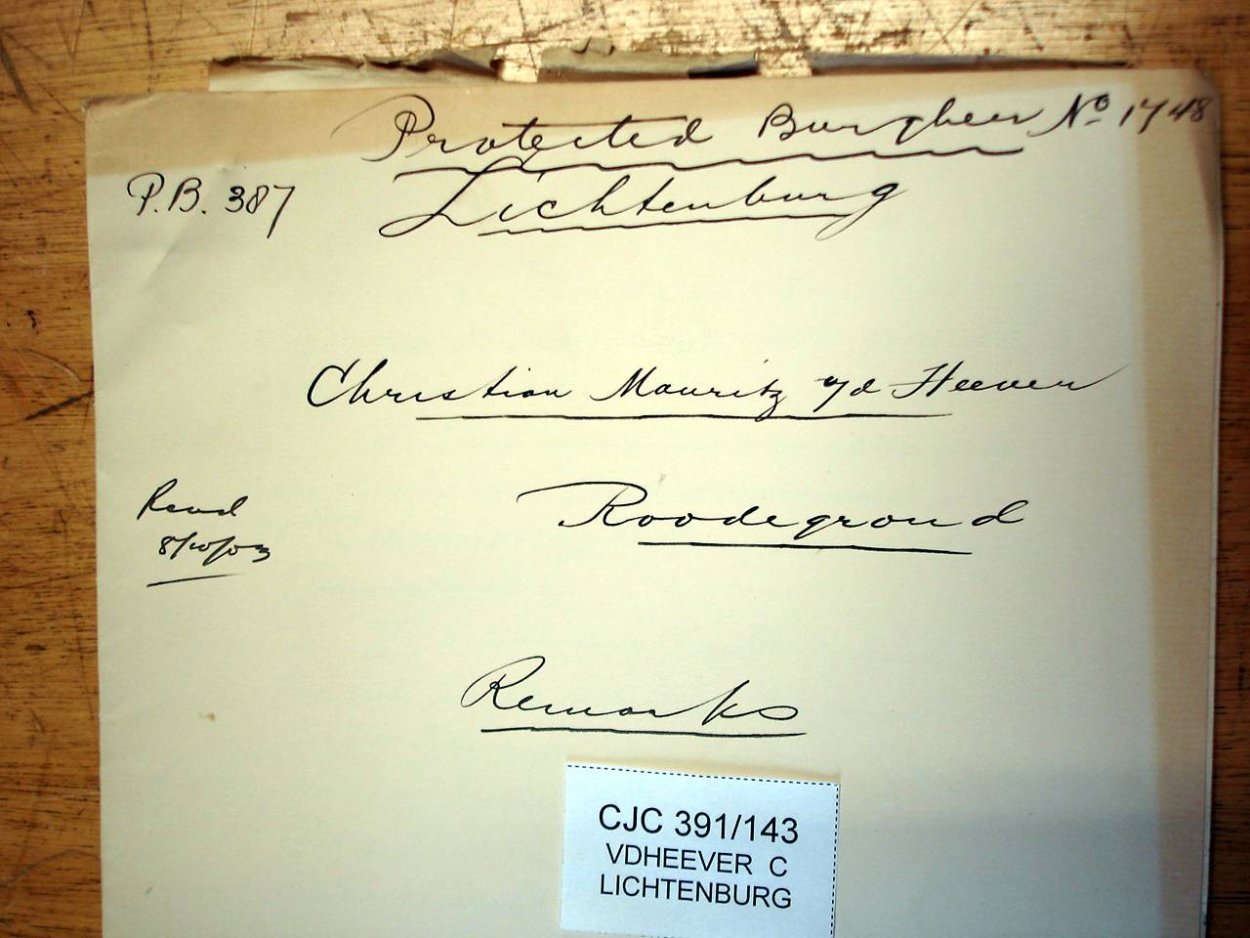 Protected Burgher No 1748
P.B. 387
Lichtenburg
Christian Mauritz v/d Heever
Recd
8/10/03
Roodegrond
Remarks
CJC 391/143
VDHEEVER C
LICHTENBURG